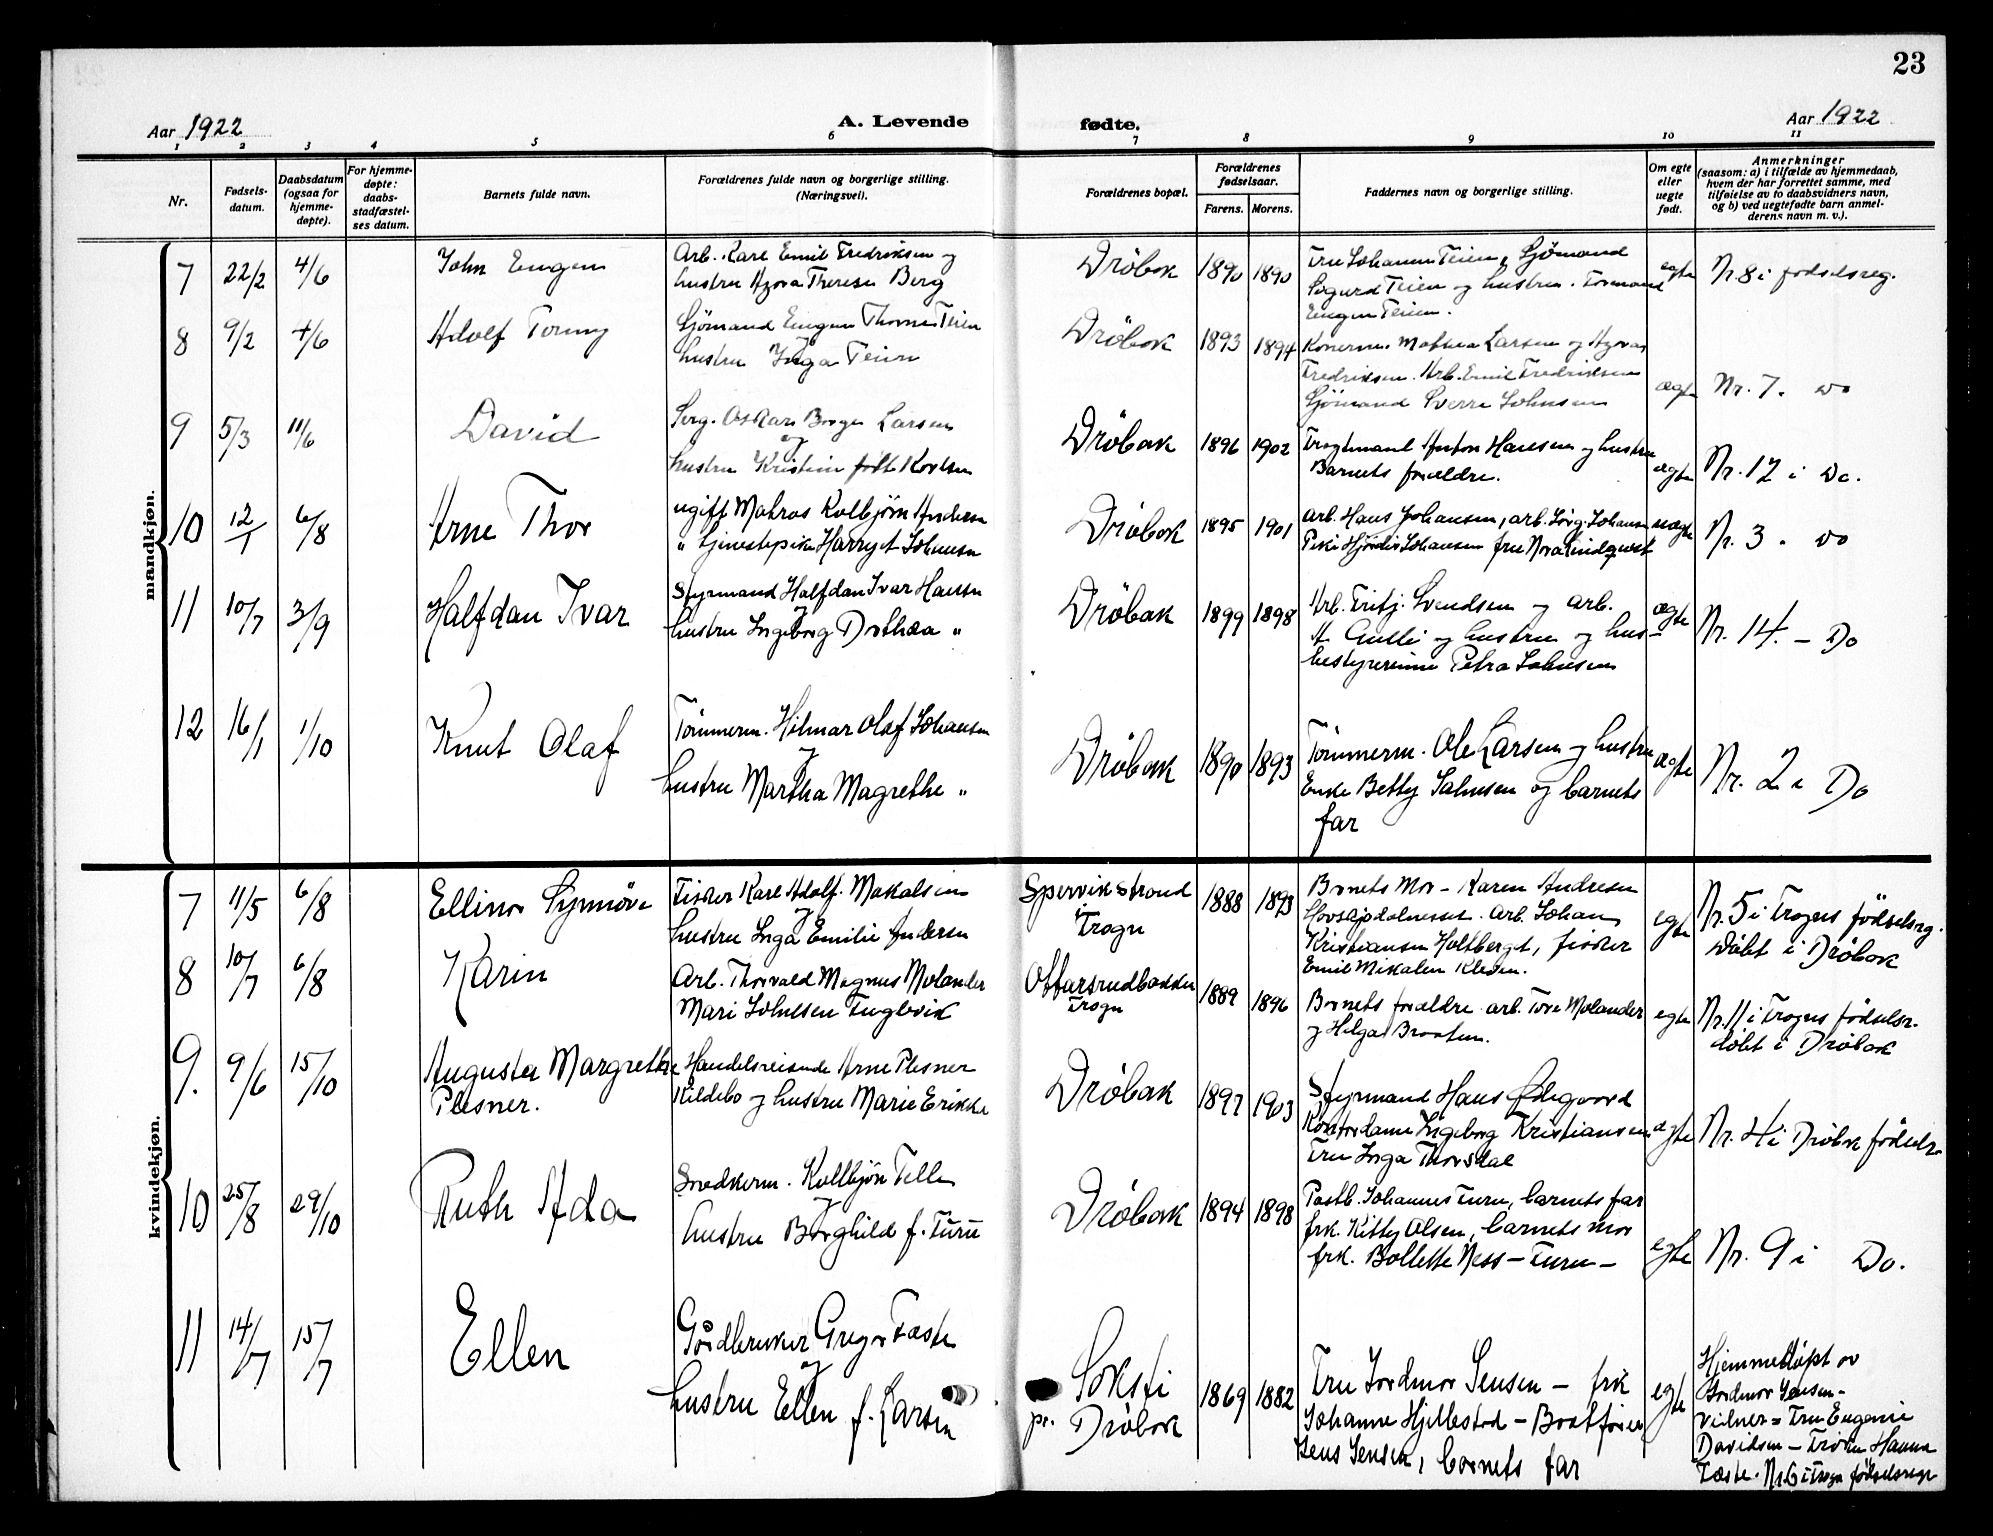 23
Aar 1922
A. Levende
fødte.
Aar 1922
1 2 3 4 5 6 7 8 9 10 11
Nr.
Fødsels-
datum.
Daabsdatum
(ogsaa for
hjemme-
døpte).
For hjemme-
døpte:
daabs-
stadfæstel-
ses datum.
Barnets fulde navn.
Forældrenes fulde navn og borgerlige stilling.
(Næringsvei).
Forældrenes bopæl.
Forældrenes
fødselsaar.
Farens. Morens.
Faddernes navn og borgerlige stilling.
Om egte
eller
uegte
født.
Anmerkninger
(saasom: a) i tilfælde av hjemmedaab,
hvem der har forrettet samme, med
tilføielse av to daabsvidners navn,
og b) ved uegtefødte barn anmel-
derens navn m. v.).
mandkjøn.
7 22/2 4/6 John Eugen
Arb. Karl Emil Fredriksen og
hustru Azora Therese Berg
Drøbak 1890 1890
Fru Johanne Teien, Sjømand
Sigurd Teien og hustru. Formand
Eugen Teien.
egte
Nr. 8 i fødselsreg.
8 9/2 4/6 Adolf Tormy
Sjømand Eugen Thomas Teien
og
hustru Inga Teien
Drøbak 1893 1894
Konerne Mathea Larsen og Azora
Fredriksen. Arb. Emil Fredriksen
Sjømand Sverre Johnsen
ægte
Nr. 7. do
9 5/3 11/6 David
Serg. Oskar Borge Larsen
og
hustru Kristine født
Drøbak 1896 1902
Anton Hansen og hustru
Barnets forældre.
ægte
Nr. 12 i Do.
10 12/1 6/8 Arne Thor
ugift Matros Kolbjørn Andersen
" tjenestepike Harryet Johnsen
Drøbak 1895 1901
Arb. Hans Johansen, arb. Jörg. Johansen
Pike Hjördis Johansen fru Nora Lindqvist
uægte
Nr. 3. do
11 10/7 3/9 Halfdan Ivar
Styrmand Halfdan Ivar Hansen
og
hustru Ingeborg Dorthea "
Drøbak 1899 1898
Arb. Fritj. Svendsen og arb.
A. Gulli og hustru og hus-
bestyrerinne Petra Johnsen
ægte
Nr. 14. – Do
12 16/1 1/10 Knut Olaf
Tömmerm. Hilmar Olaf Johansen
og
hustru Martha Magrethe "
Drøbak 1890 1893
Tömmerm. Ole Larsen og hustru
Enke Betty Salmsen og barnets
far
ægte
Nr. 2 i Do
kvindekjøn.
7 11/5 6/8 Ellinor Synnöve
Fisker Karl Adolf Mikalsen
og
hustru Inga Emilie Andersen
Spervikstrand
i Frogn
1888 1893
Barnets Mor – Karen Andresen
arb. Johan
Kristiansen Holtbergt, fisker
Emil Mikalsen
egte
Nr. 5 i Frogns födselsreg.
Döbt i Dröbak
8 10/7 6/8 Karin
Arb. Thorvald Magnus Molander
Mari Johnsen Fuglevik
Ottarsrudbakken
Frogn
1889 1896
Barnets forældre arb. Tore Molander
og Helga Braaten.
egte
Nr. 11 i Frogns födselsr.
döbt i Dröbak
9. 9/6 15/10 Augusta Margrethe
Plesner.
Handelsreisende Arne Plesner
Kildebo og hustru Marie Erikke
Drøbak 1897 1903
Styrmand Hans Ødegaard
Kontordame Ingeborg Kristiansen
Fru Inga Thorsdal
egte
Nr. 4 i Dröbak födselsr.
10 25/8 29/10 Ruth Ada
Snedkerm. Kolbjørn Telle
og
hustru Borghild f. Furu
Drøbak 1894 1898
Postb. Johannes Furu, barnets far
frk. Kitty Olsen, barnets mor
frk. Bollette Ness – Furu –
egte
Nr. 9 i Do.
11 14/7 15/7 Ellen
Gårdbruker Gregor Faste
og
hustru Ellen f. Larsen
Soksti
pr. Dröbak
1869 1882
Fru Jordmor Jensen – frk
Johanne Hjellestad – Baatfører
Jens Jensen, barnets far
egte
Hjemmedöpt av
Jordmor Jensen –
vidner = Fru Eugenie
Davidsen – Fröken Hanna
Faste. Nr. 6 i Frogn fødselsregr